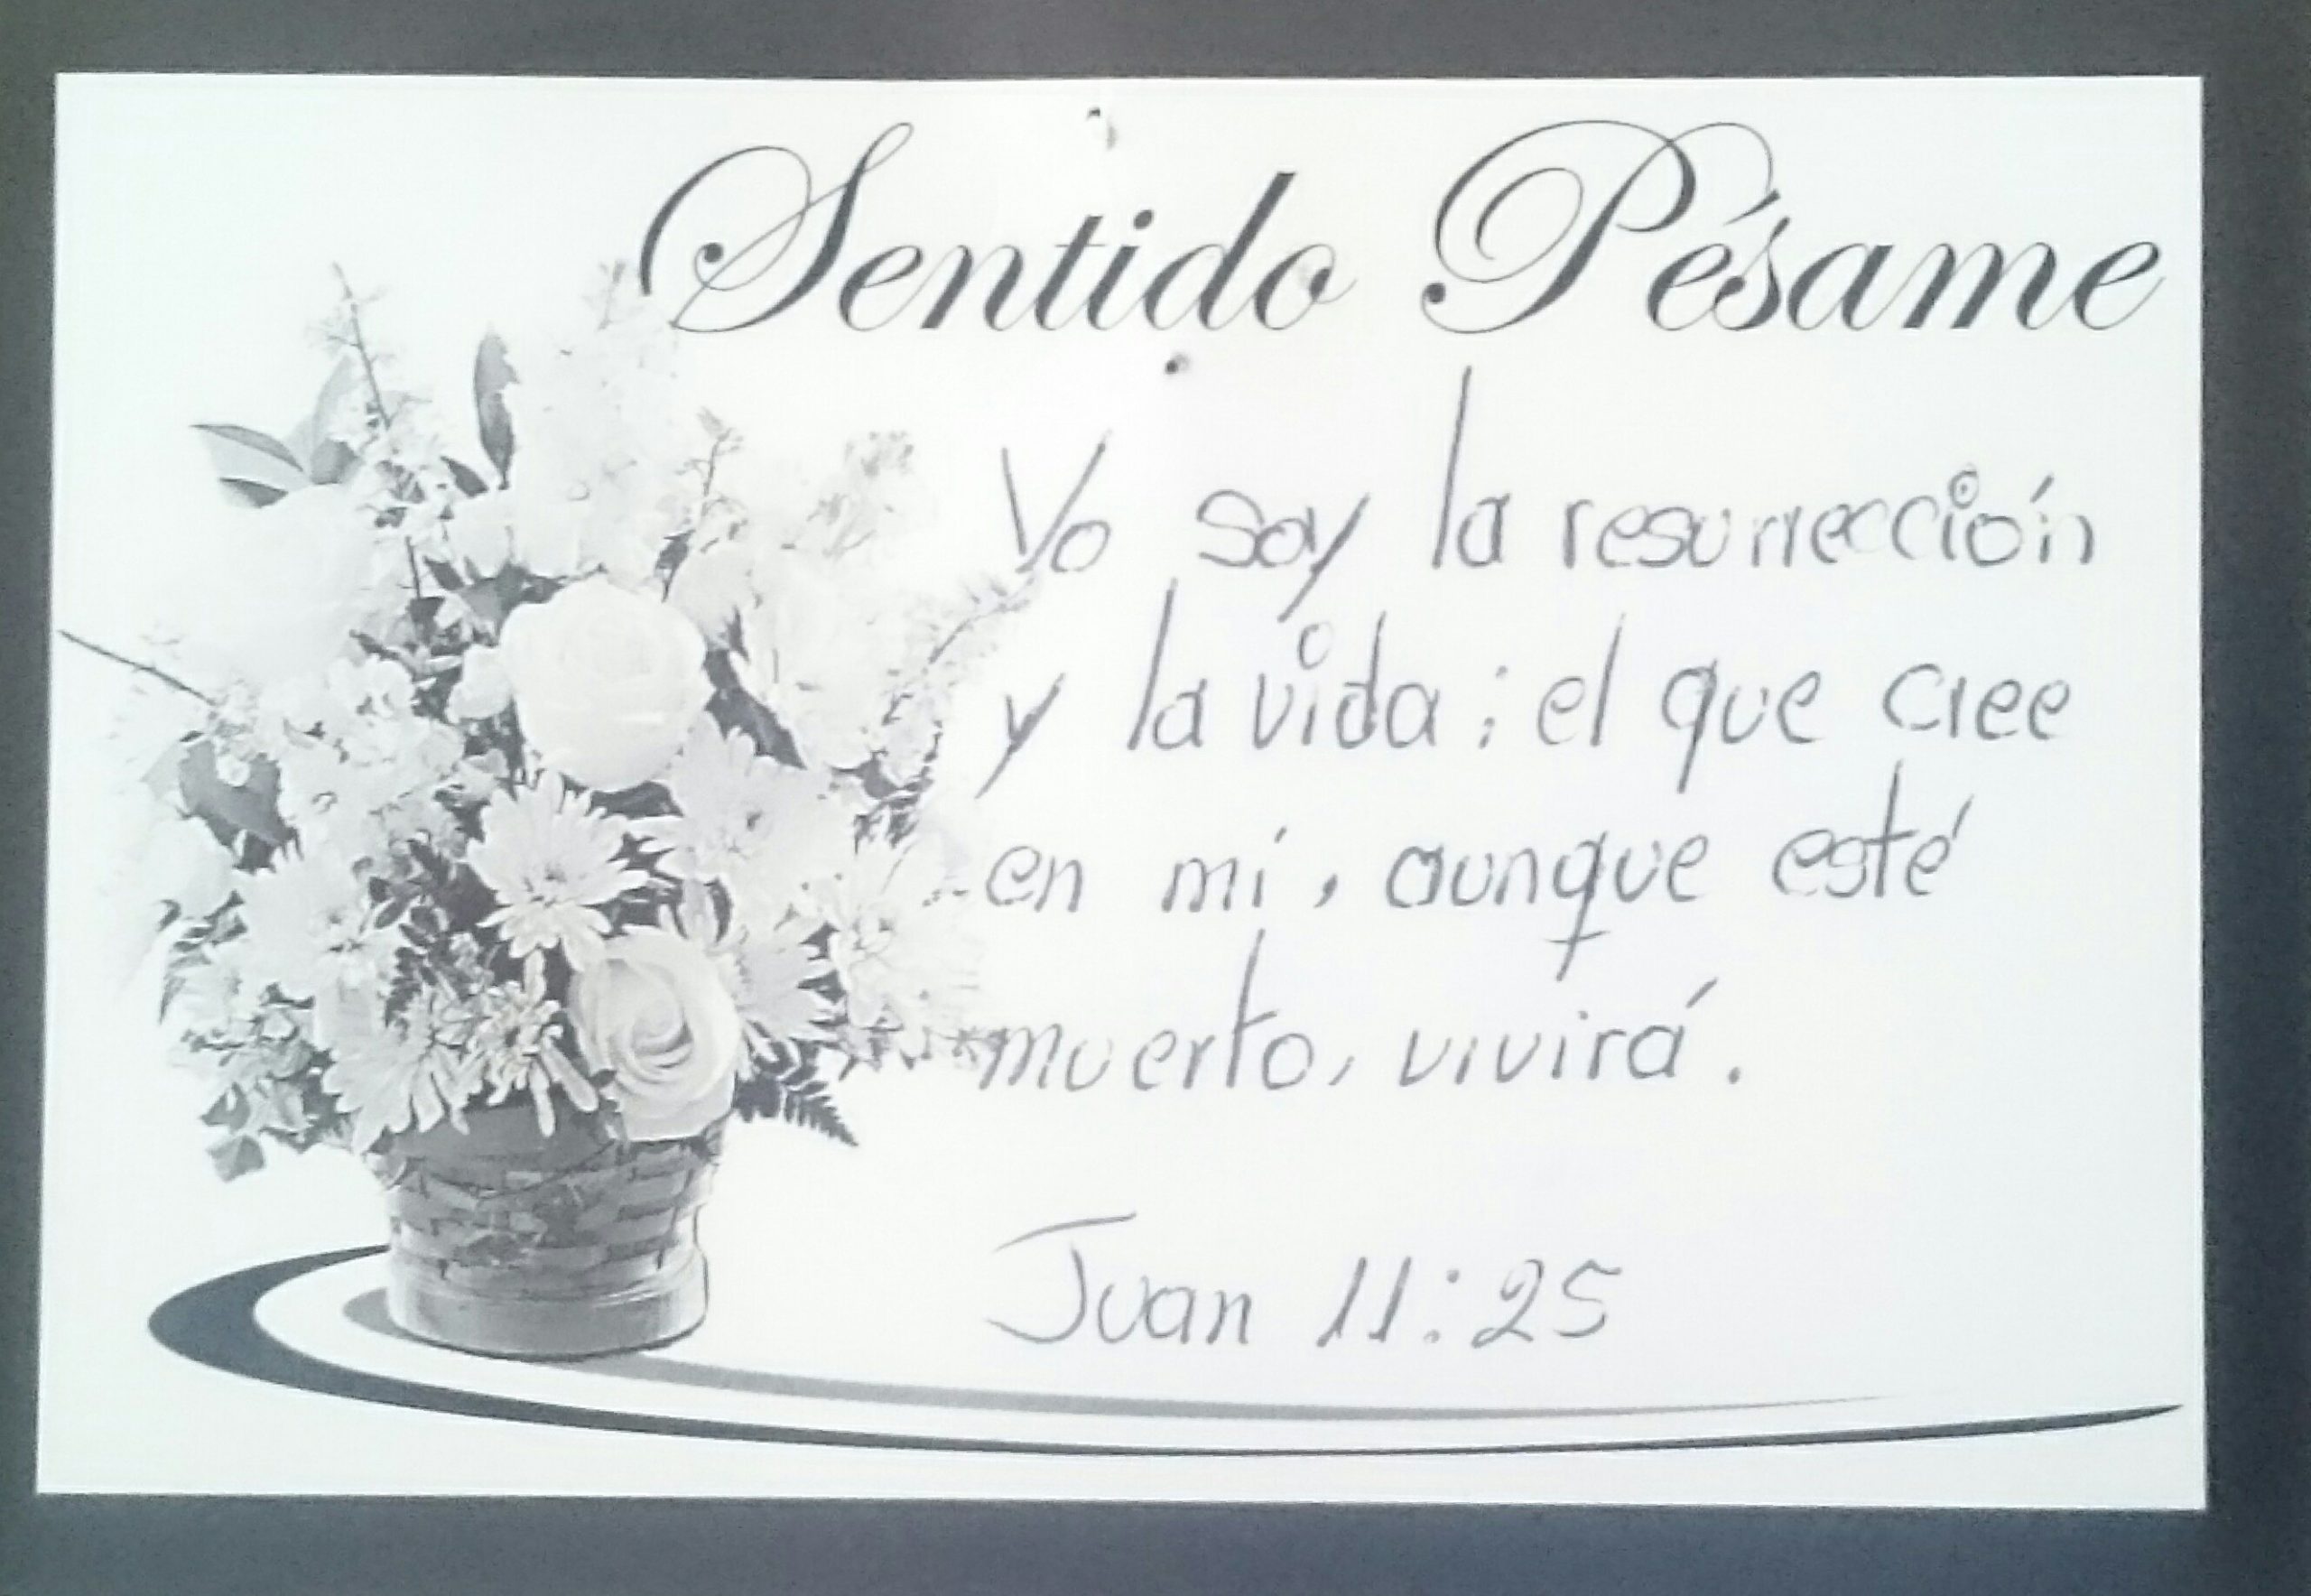 Sentido Pésame
Yo soy la resurrección
y la vida; el que cree
en mí, aunque esté
muerto, vivirá.
Juan 11:25